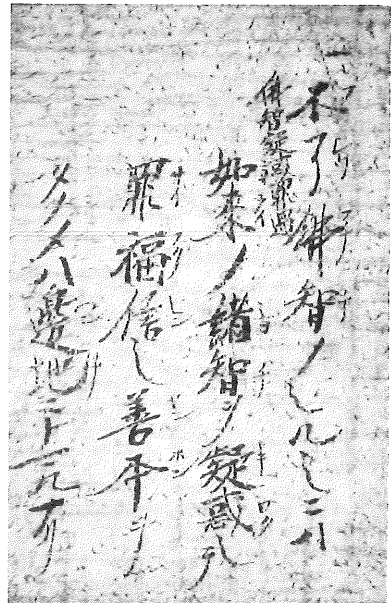 一
不了佛智ノシルシニハ
佛智疑惑罪過
如來ノ諸智ヲ疑惑シテ
罪福信シ善本ヲ
タノメハ邊地ニトマルナリ